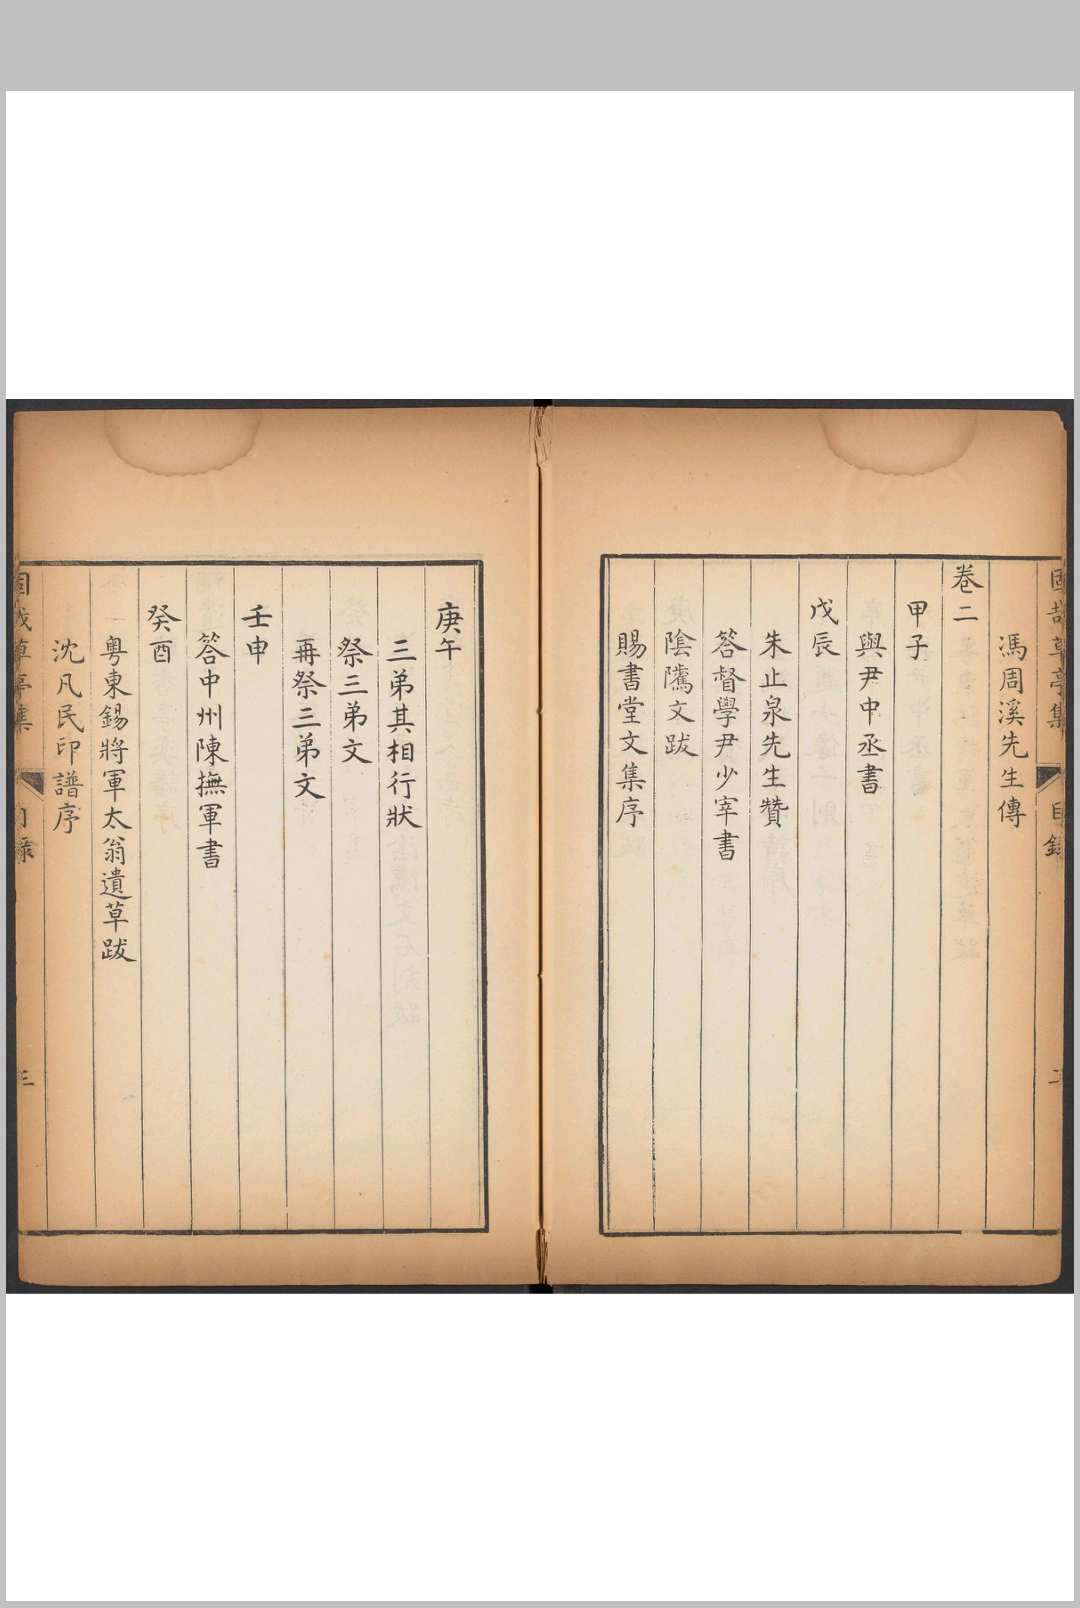 固哉草亭集 目錄
馮周溪先生傳
卷二
甲子
與尹中丞書
戊辰
朱止泉先生贊
答督學尹少宰書
陰騭文跋
賜書堂文集序
庚午
三弟其相行狀
祭三弟文
再祭三弟文
壬申
答中州陳撫軍書
癸酉
粵東錫將軍太翁遺草跋
沈凡民印譜序
固哉草亭集 目錄